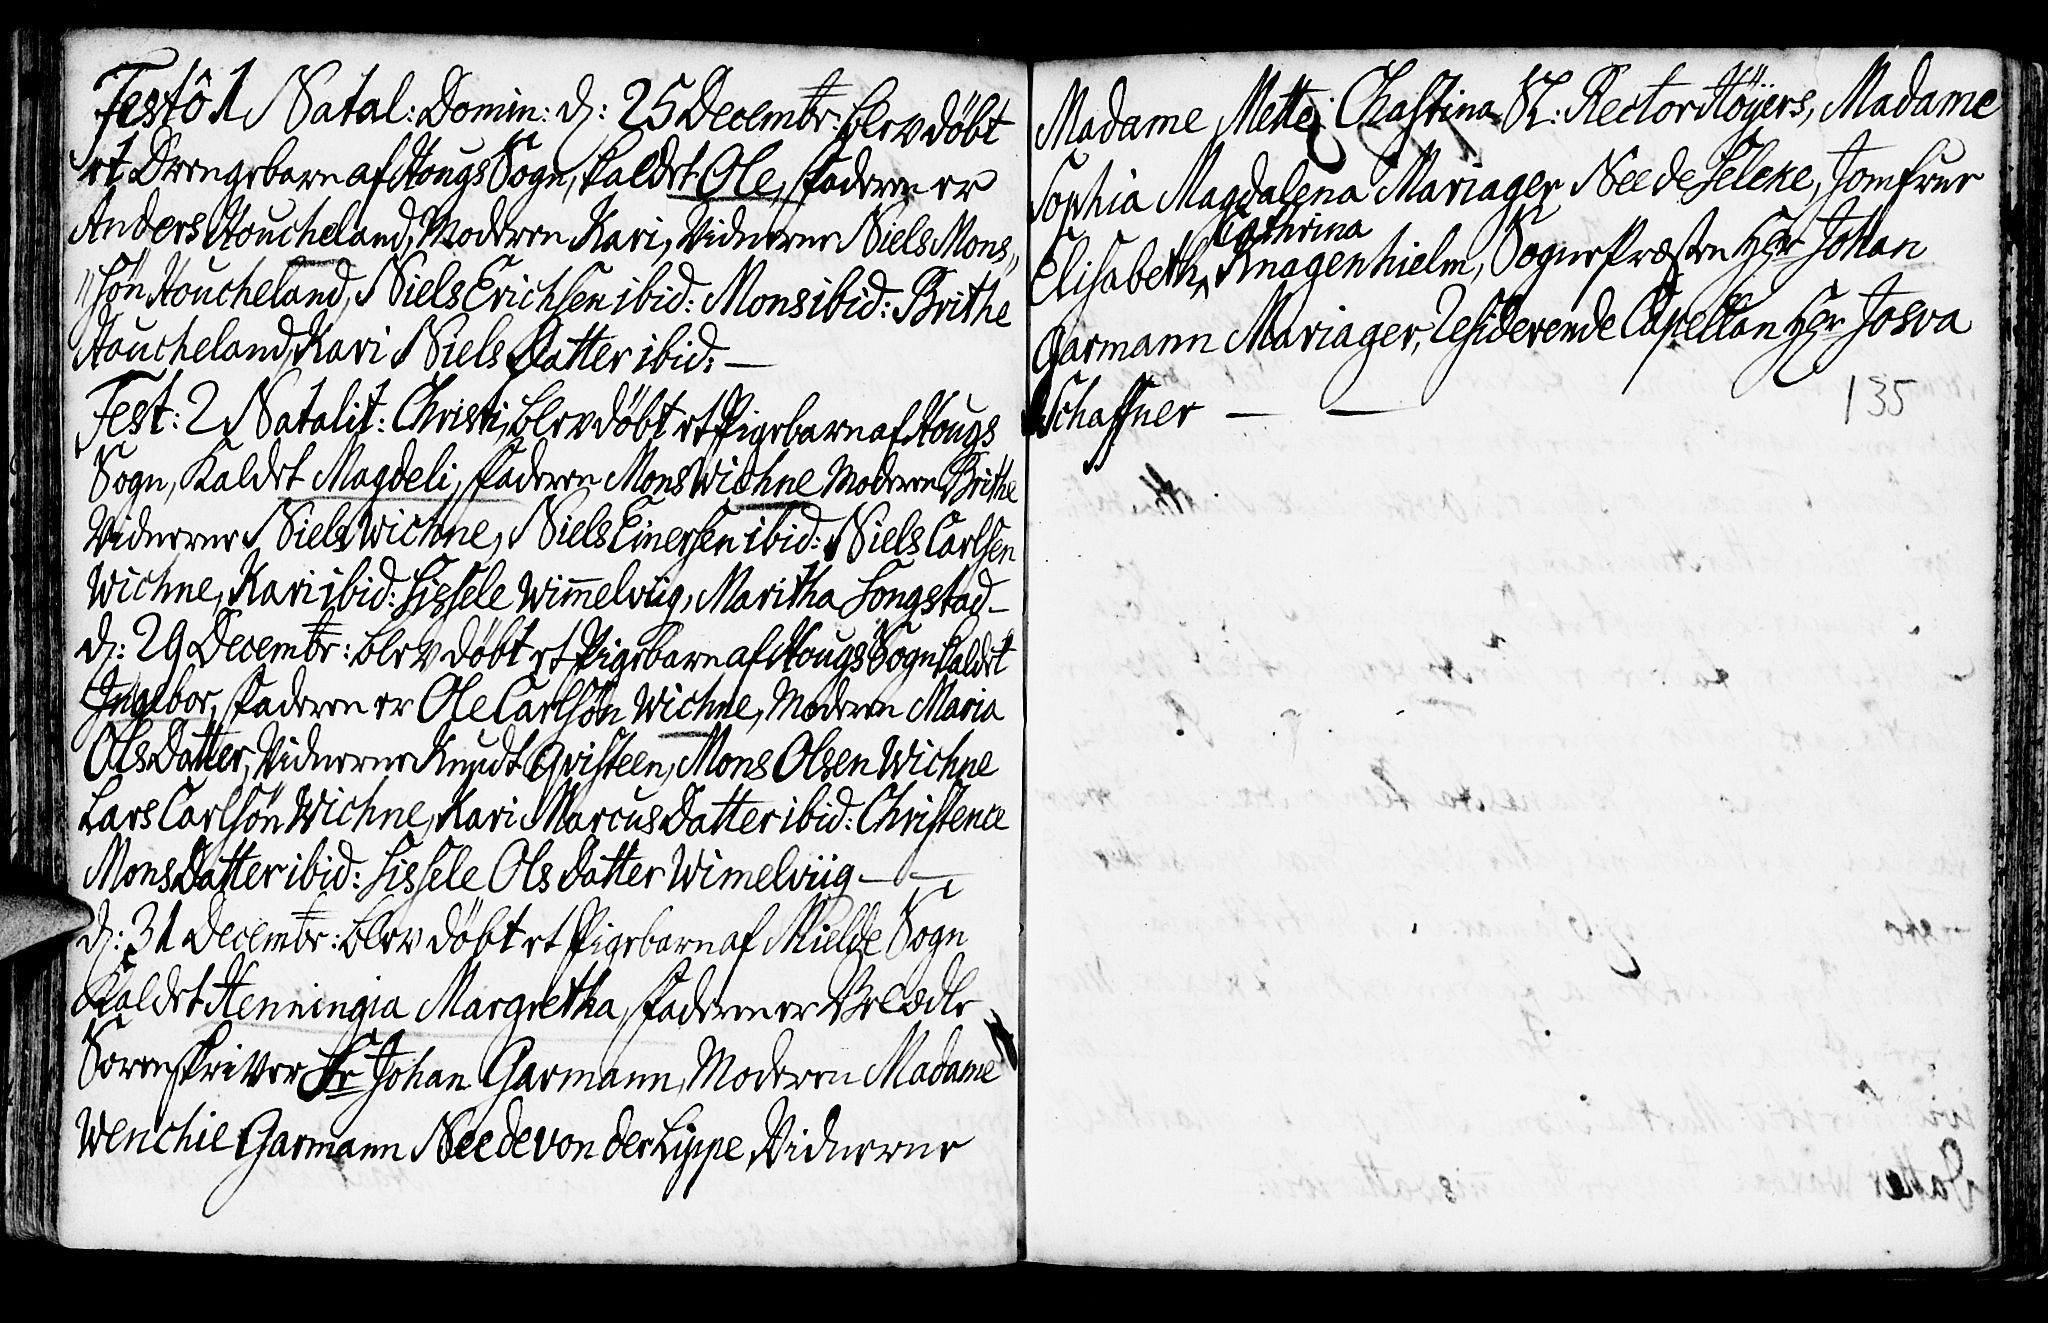 Festô 1 Natal: Domin: d: 25 Decembr: blev döbt
et Drengebarn af Hougs Sogn, kaldet Ole, Faderen er
Anders Houcheland, Moderen Kari, Vidnerne Niels Mons„
„sön Houcheland, Niels Erichsen ibid: Mons ibid: Brithe
Houcheland, Kari Niels Datter ibid: —
Fest: 2 Natalit: Christi, blev döbt et Pigebarn af Hougs
Sogn, Kaldet Magdeli, Faderen Mons Wichne Moderen Brithe
Vidnerne Niels Wichne, Niels Einersen ibid: Niels Carlsen
Wichne, Kari ibid: Sissele Wim̅elviig, Maritha Longstad —
d: 29 Decembr: blev döbt et Pigebarn af Hougs Sogn Kaldet
Ingebor, Faderen er Ole Carlsön Wichne, Moderen Maria
Ols Datter, Vidnerne Knudt Qvisteen, Mons Olsen Wichne
Lars Carlsön Wichne, Kari Marcus Datter ibid: Christence
Mons Datter ibid: Sissele Ols Datter Wimelviig — —
d: 31 Decembr: blev döbt et Pigebarn af Mielde Sogn
Kaldet Henningia Margretha, Faderen er
Sorenskriver Hr Johan Garmann, Moderen Madame
Wenchie Garmann Nee de von der Lippe, Vidnerne
Madame Mette Chastina Sl: Rector Höÿers, Madame
Sophia Magdalena Mariager Nee de Felcke, Jomfrue
Cathrina
Elisabeth ^ Knagenhielm, Sognepræsten Hr Johan
Garmann Mariager, Residerende Capellan Hr Josva
Schaffner — —
135